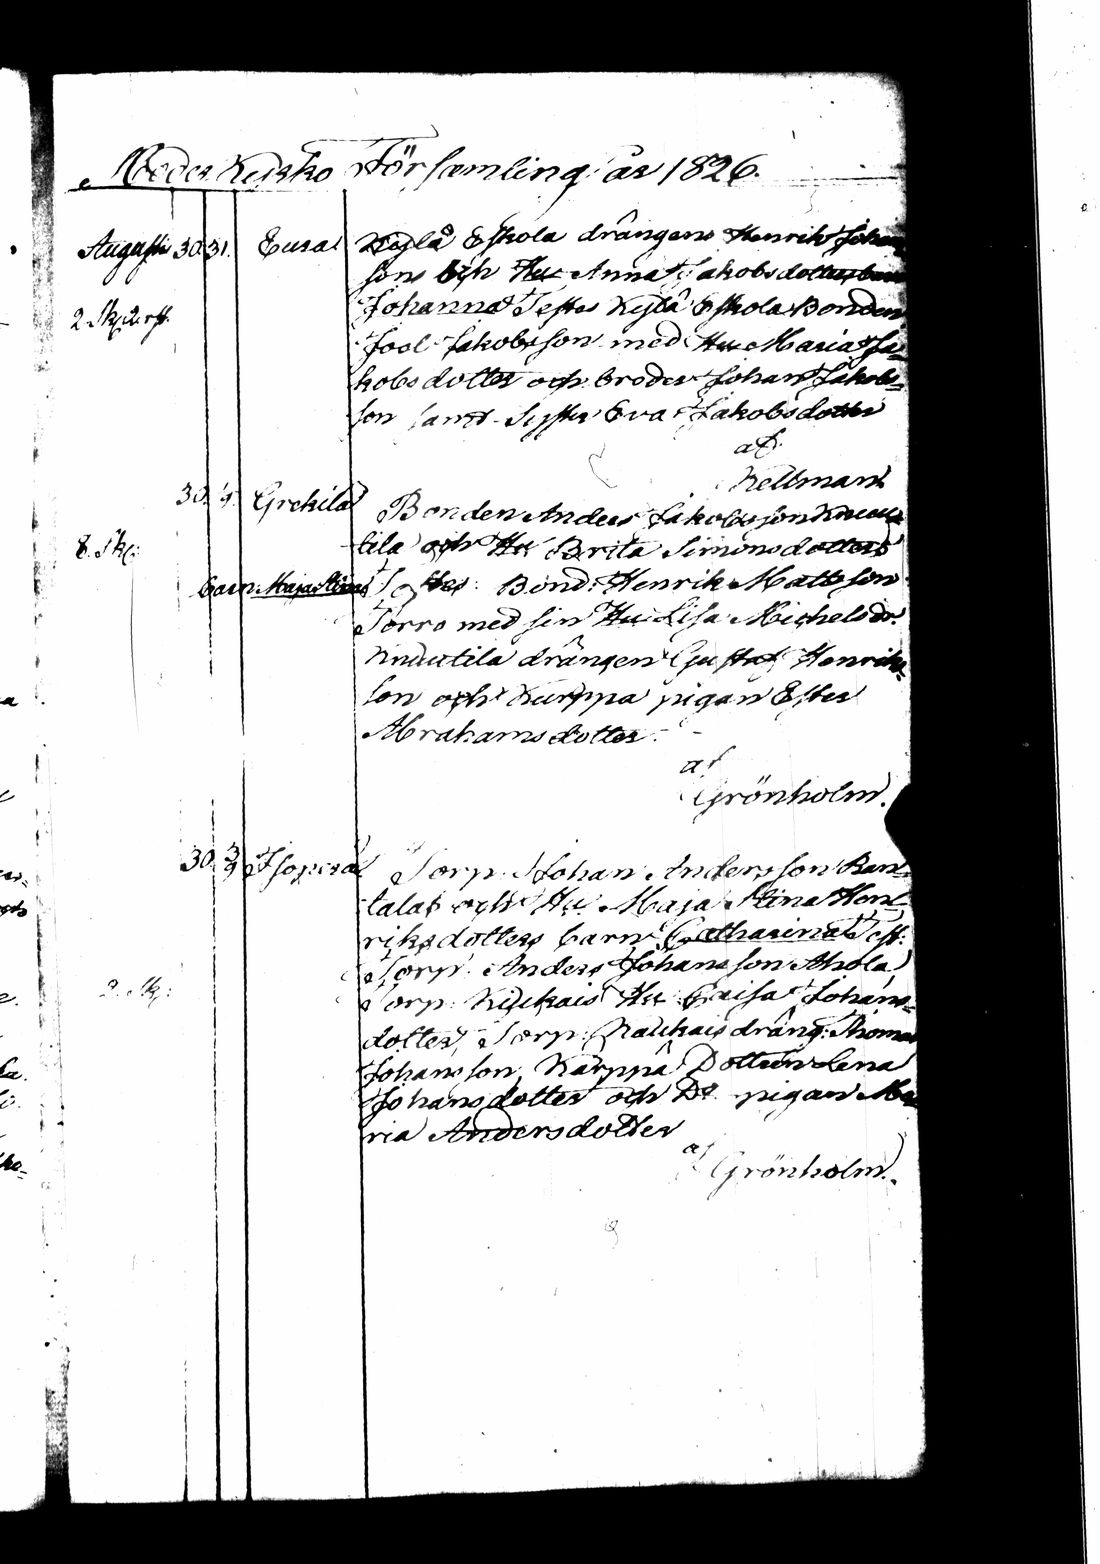 Kisko Församling år 1826.
Augusti 30. 31. Eura Kejlä Eskola drängens Henrik Johan
sons och Hu Anna Jakobsdotters barn
Johanna Testes Kejlä Eskola Bonden
2 Sk. 2 rst.
Joel Jakobsson med Hu Maria Ja-
kobsdotter och broder Johan Jakobs-
son samt Syster Eva Jakobsdotter
af
Kellman
30. Grekilä Bonden Anders Jakobsson
8. Sk.
tila och Hu Brita Simonsdotters
barn Maja Stina Testes: Bond. Henrik Mattsson
Torro med sin Hu Lisa Michelsdr.
Knuutila drängen Gustaf Henriks-
son och Kurppa pigan Ester
Abrahamsdotter.
af
Grönholm.
30. 3/9 Isoperä Torp. Johan Andersson Ran-
talas och Hu Maja Stina Hen-
riksdotters barn Catharina Test.
Torp. Anders Johansson Ahola,
2. Sk.
Torp. Kiukais Hu Caisa Johans-
dotter, Torp. Kaukais dräng. Thomas
Johansson, Kärppä Dottren Lena
Johansdotter och Do pigan Ma-
ria Andersdotter
af Grönholm.